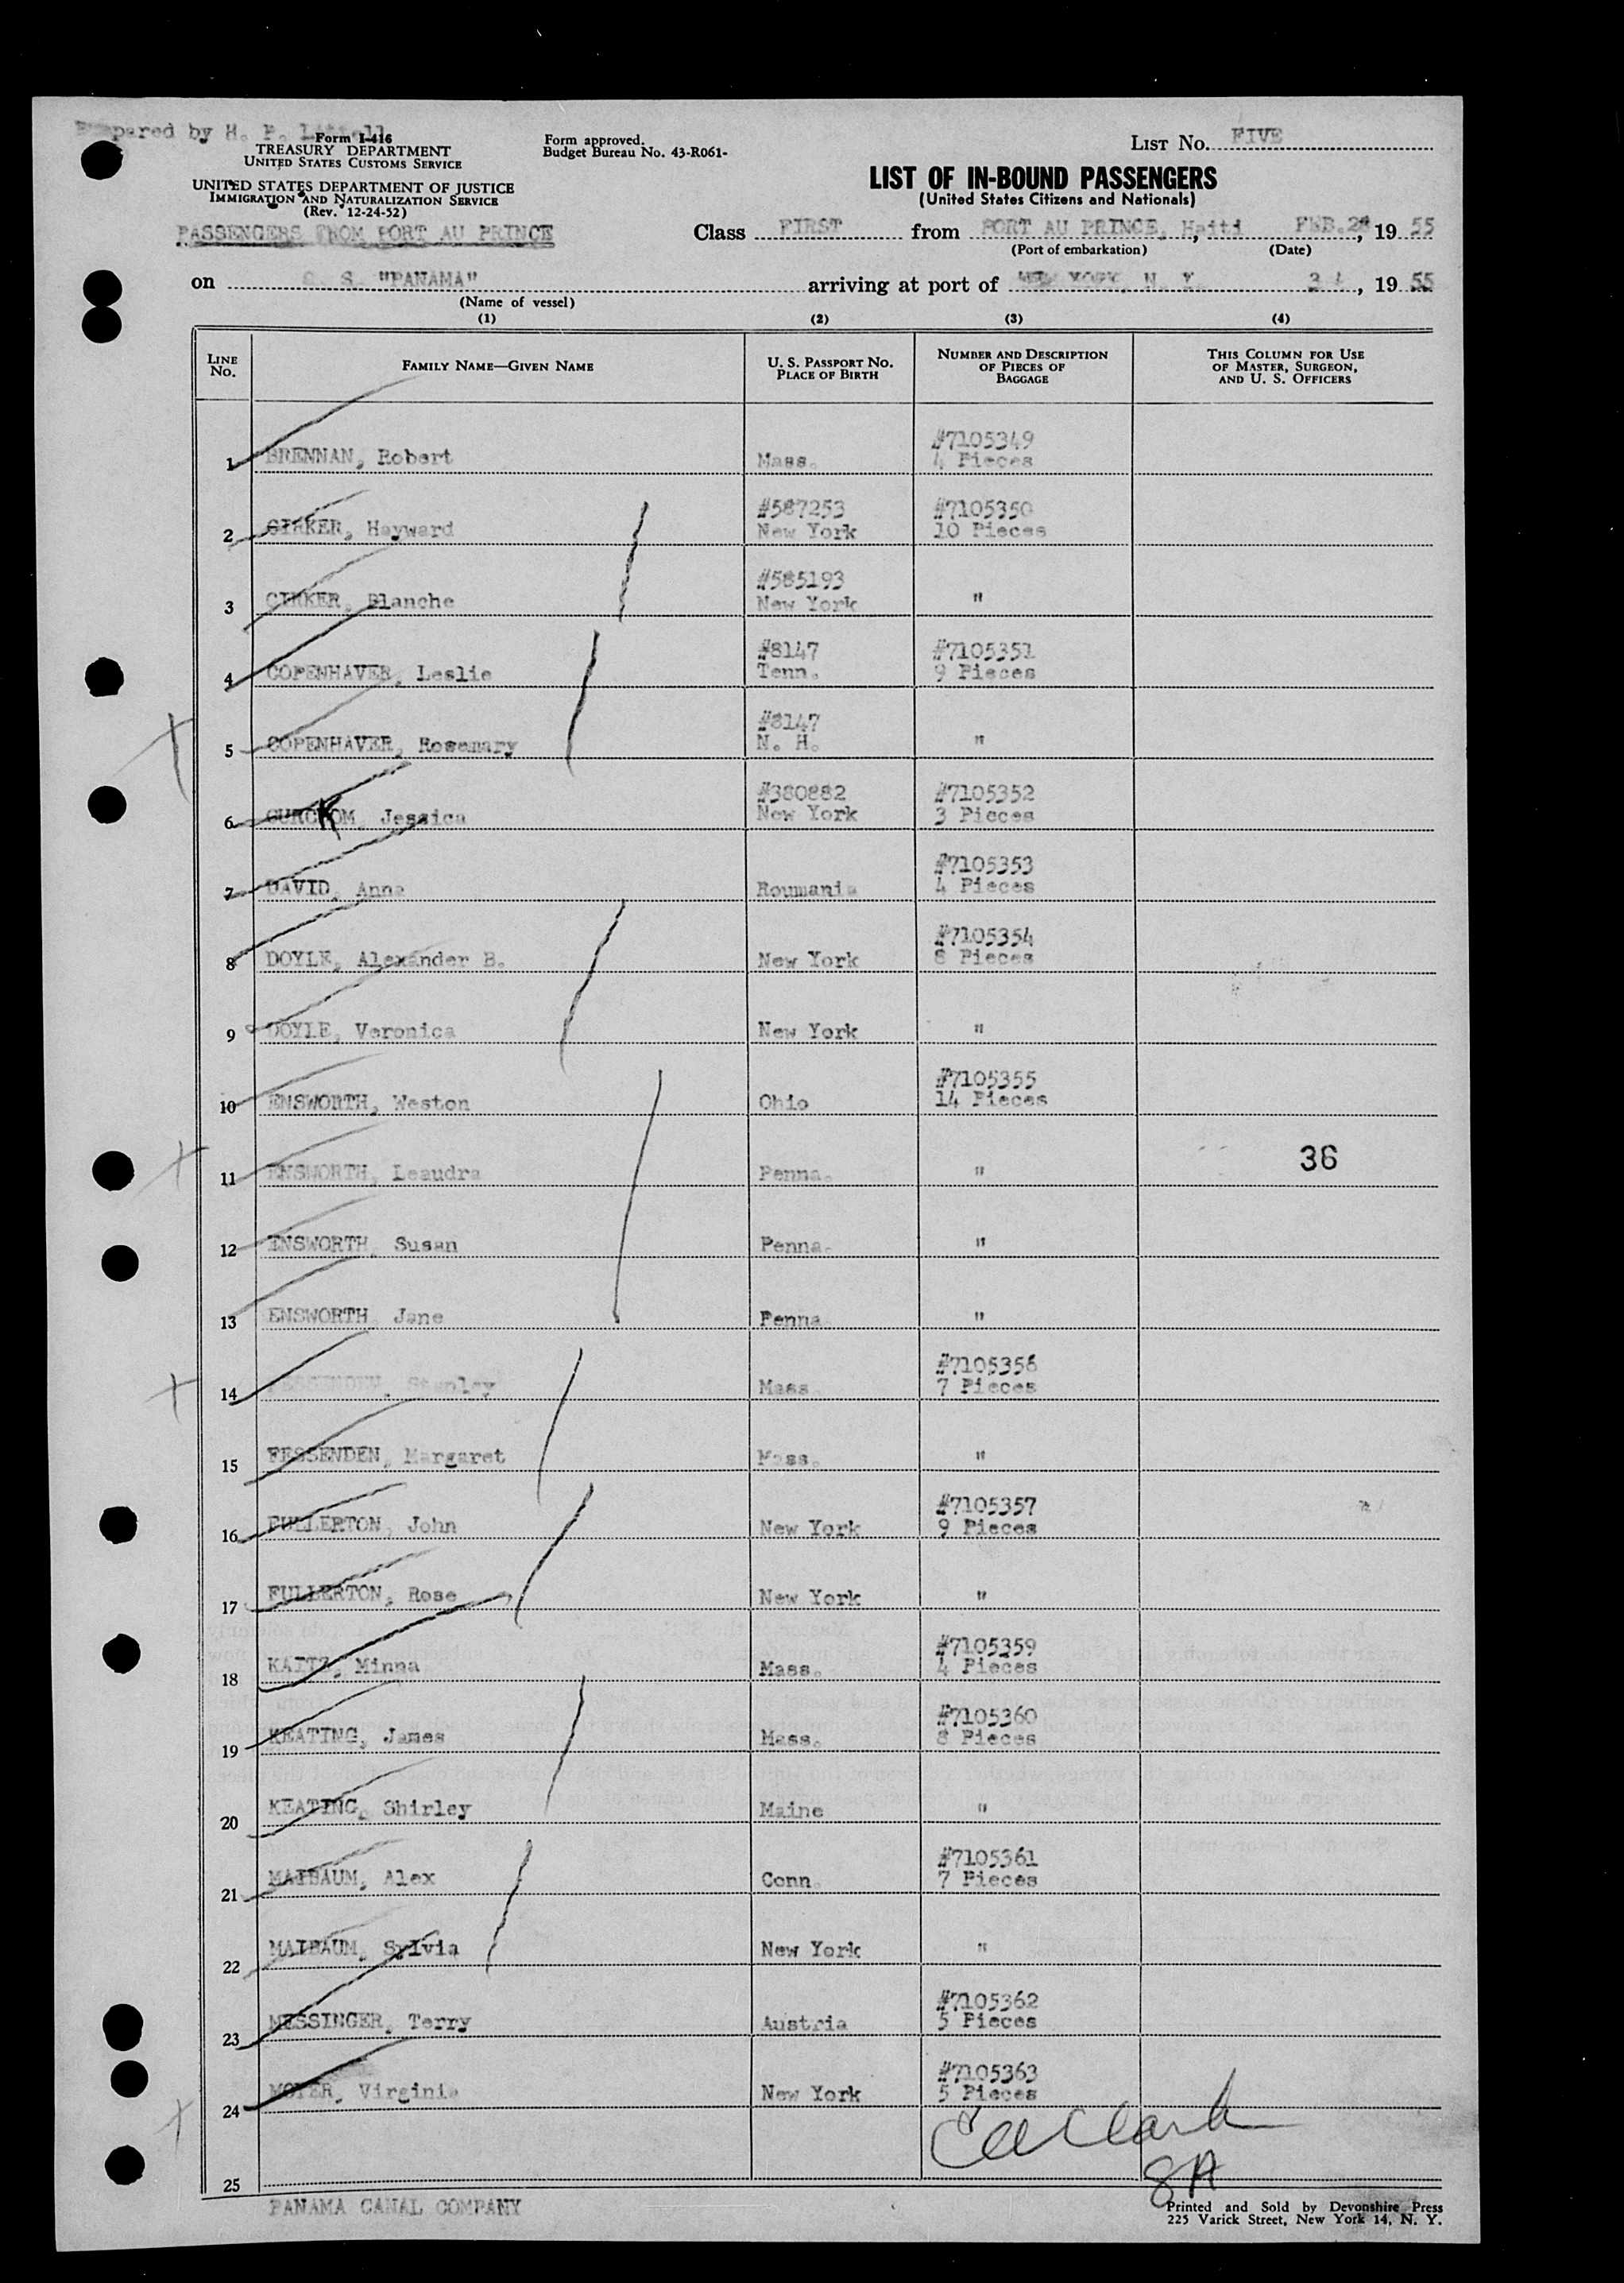 pared by H. P.
Form I-416
TREASURY DEPARTMENT
UNITED STATES CUSTOMS SERVICE
UNITED STATES DEPARTMENT OF JUSTICE
IMMIGRATION AND NATURALIZATION SERVICE
(Rev. 12-24-52)
PASSENGERS FROM PORT AU PRINCE
Form approved.
Budget Bureau No. 43-R061-
LIST No. FIVE
LIST OF IN-BOUND PASSENGERS
(United States Citizens and Nationals)
Class FIRST from PORT AU PRINCE, Haiti FEB. , 19 55
(Port of embarkation) (Date)
on S. "PANAMA" arriving at port of NEW YORK, N. Y. , 19 55
(Name of vessel)
(1) (2) (3) (4)
LINE No. FAMILY NAME—GIVEN NAME U. S. PASSPORT NO. PLACE OF BIRTH NUMBER AND DESCRIPTION OF PIECES OF BAGGAGE THIS COLUMN FOR USE OF MASTER, SURGEON, AND U. S. OFFICERS
#7105349
1 BRENNAN, Robert Mass. 4 Pieces
#587253 #7105350
2 CIRKER, Hayward New York 10 Pieces
#585193
3 CIRKER, Blanche New York "
#8147 #7105351
4 COPENHAVER, Leslie Tenn. 9 Pieces
#8147
5 COPENHAVER, Rosemary N. H. "
#380882 #7105352
6 Jessica New York 3 Pieces
#7105353
7 DAVID, Anna Roumania 4 Pieces
#7105354
8 DOYLE, Alexander B. New York 8 Pieces
9 DOYLE, Veronica New York "
#7105355
10 ENSWORTH, Weston Ohio 14 Pieces
11 ENSWORTH, Leaudra Penna. " 36
12 ENSWORTH, Susan Penna. "
13 ENSWORTH Jane Penna "
#7105356
14 FESSENDEN, Stanley Mass 7 Pieces
15 FESSENDEN, Margaret Mass. "
#7105357
16 FULLERTON, John New York 9 Pieces
17 FULLERTON, Rose New York "
#7105359
18 KAITZ, Minna Mass. 4 Pieces
#7105360
19 KEATING, James Mass. 8 Pieces
20 KEATING, Shirley Maine "
#7105361
21 MAIBAUM, Alex Conn. 7 Pieces
22 MAIBAUM, Sylvia New York "
#7105362
23 MESSINGER, Terry Austria 5 Pieces
#7105363
24 MOYER, Virginia New York 5 Pieces
25
PANAMA CANAL COMPANY
Printed and Sold by Devonshire Press
225 Varick Street, New York 14, N. Y.